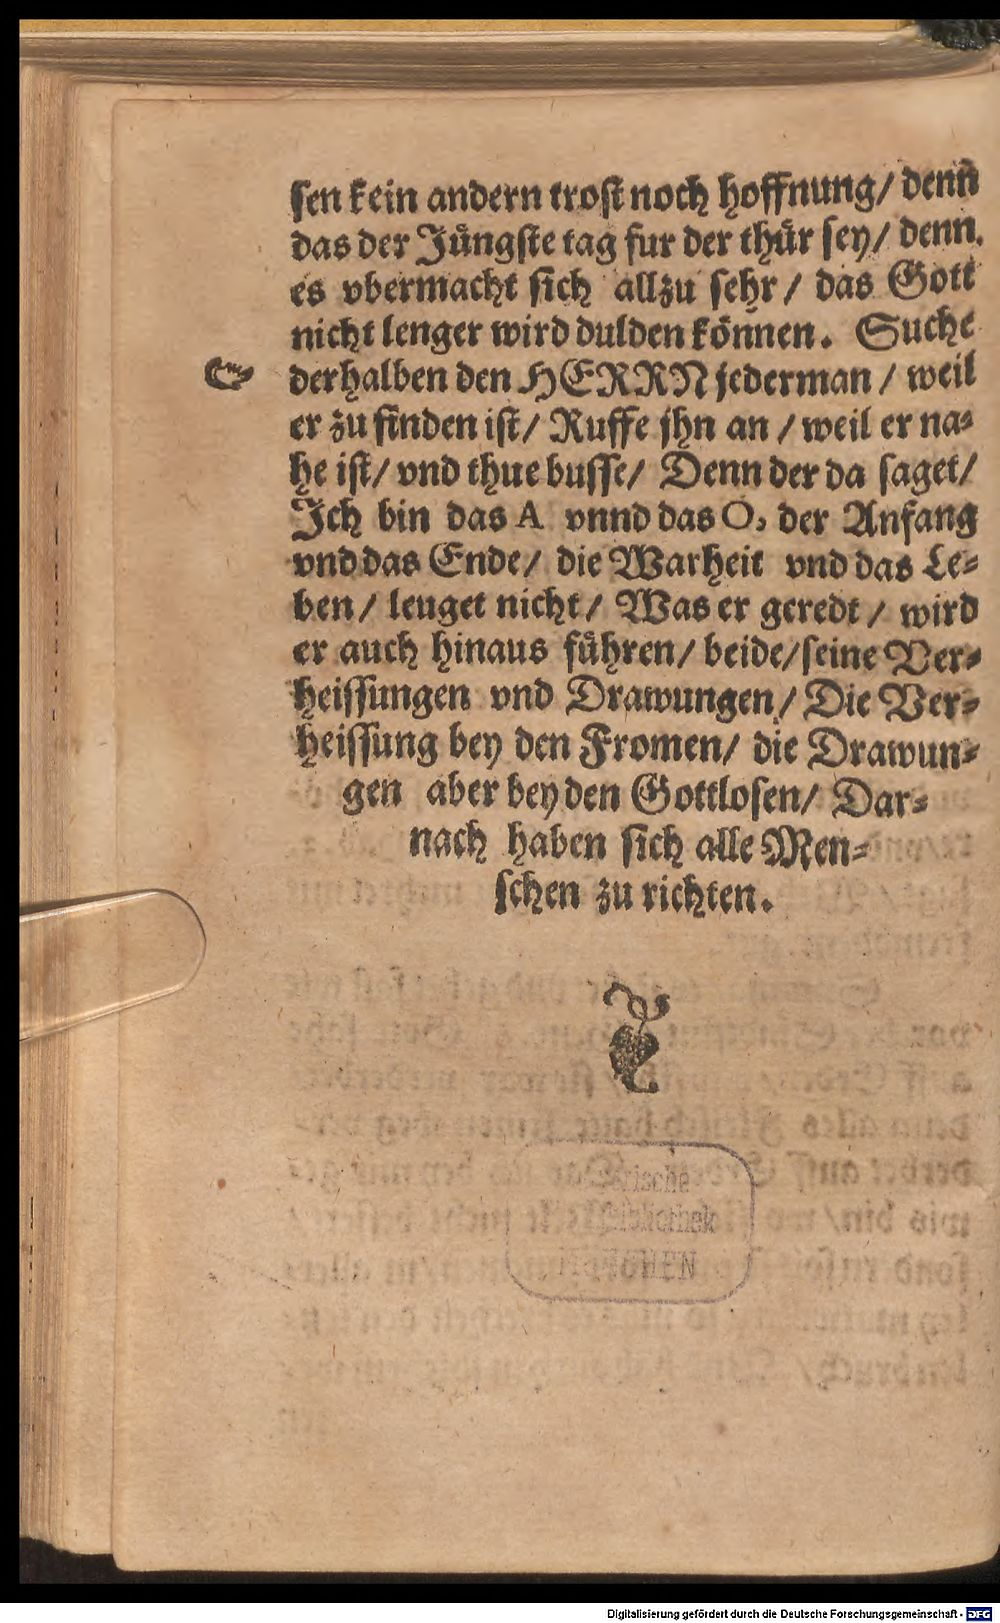 ſen kein andern troſt noch hoffnung/ denn
das der Jüngſte tag fur der thür ſey/ denn
es vbermacht ſich allzu ſehr / das Gott
nicht lenger wird dulden können. Suche
derhalben den HERRN jederman / weil
er zu finden iſt/ Ruffe jhn an / weil er na⸗
he iſt/ vnd thue buſſe/ Denn der da ſaget/
Ich bin das A vnnd das O, der Anfang
vnd das Ende/ die Warheit vnd das Le⸗
ben / leuget nicht / Was er geredt / wird
er auch hinaus führen/ beide/ ſeine Ver⸗
heiſſungen vnd Drawungen/ Die Ver⸗
heiſſung bey den Fromen/ die Drawun⸗
gen aber bey den Gottloſen/ Dar⸗
nach haben ſich alle Men⸗
ſchen zu richten.
Bibliothek
Digitalisierung gefördert durch die Deutsche Forschungsgemeinschaft - DFG